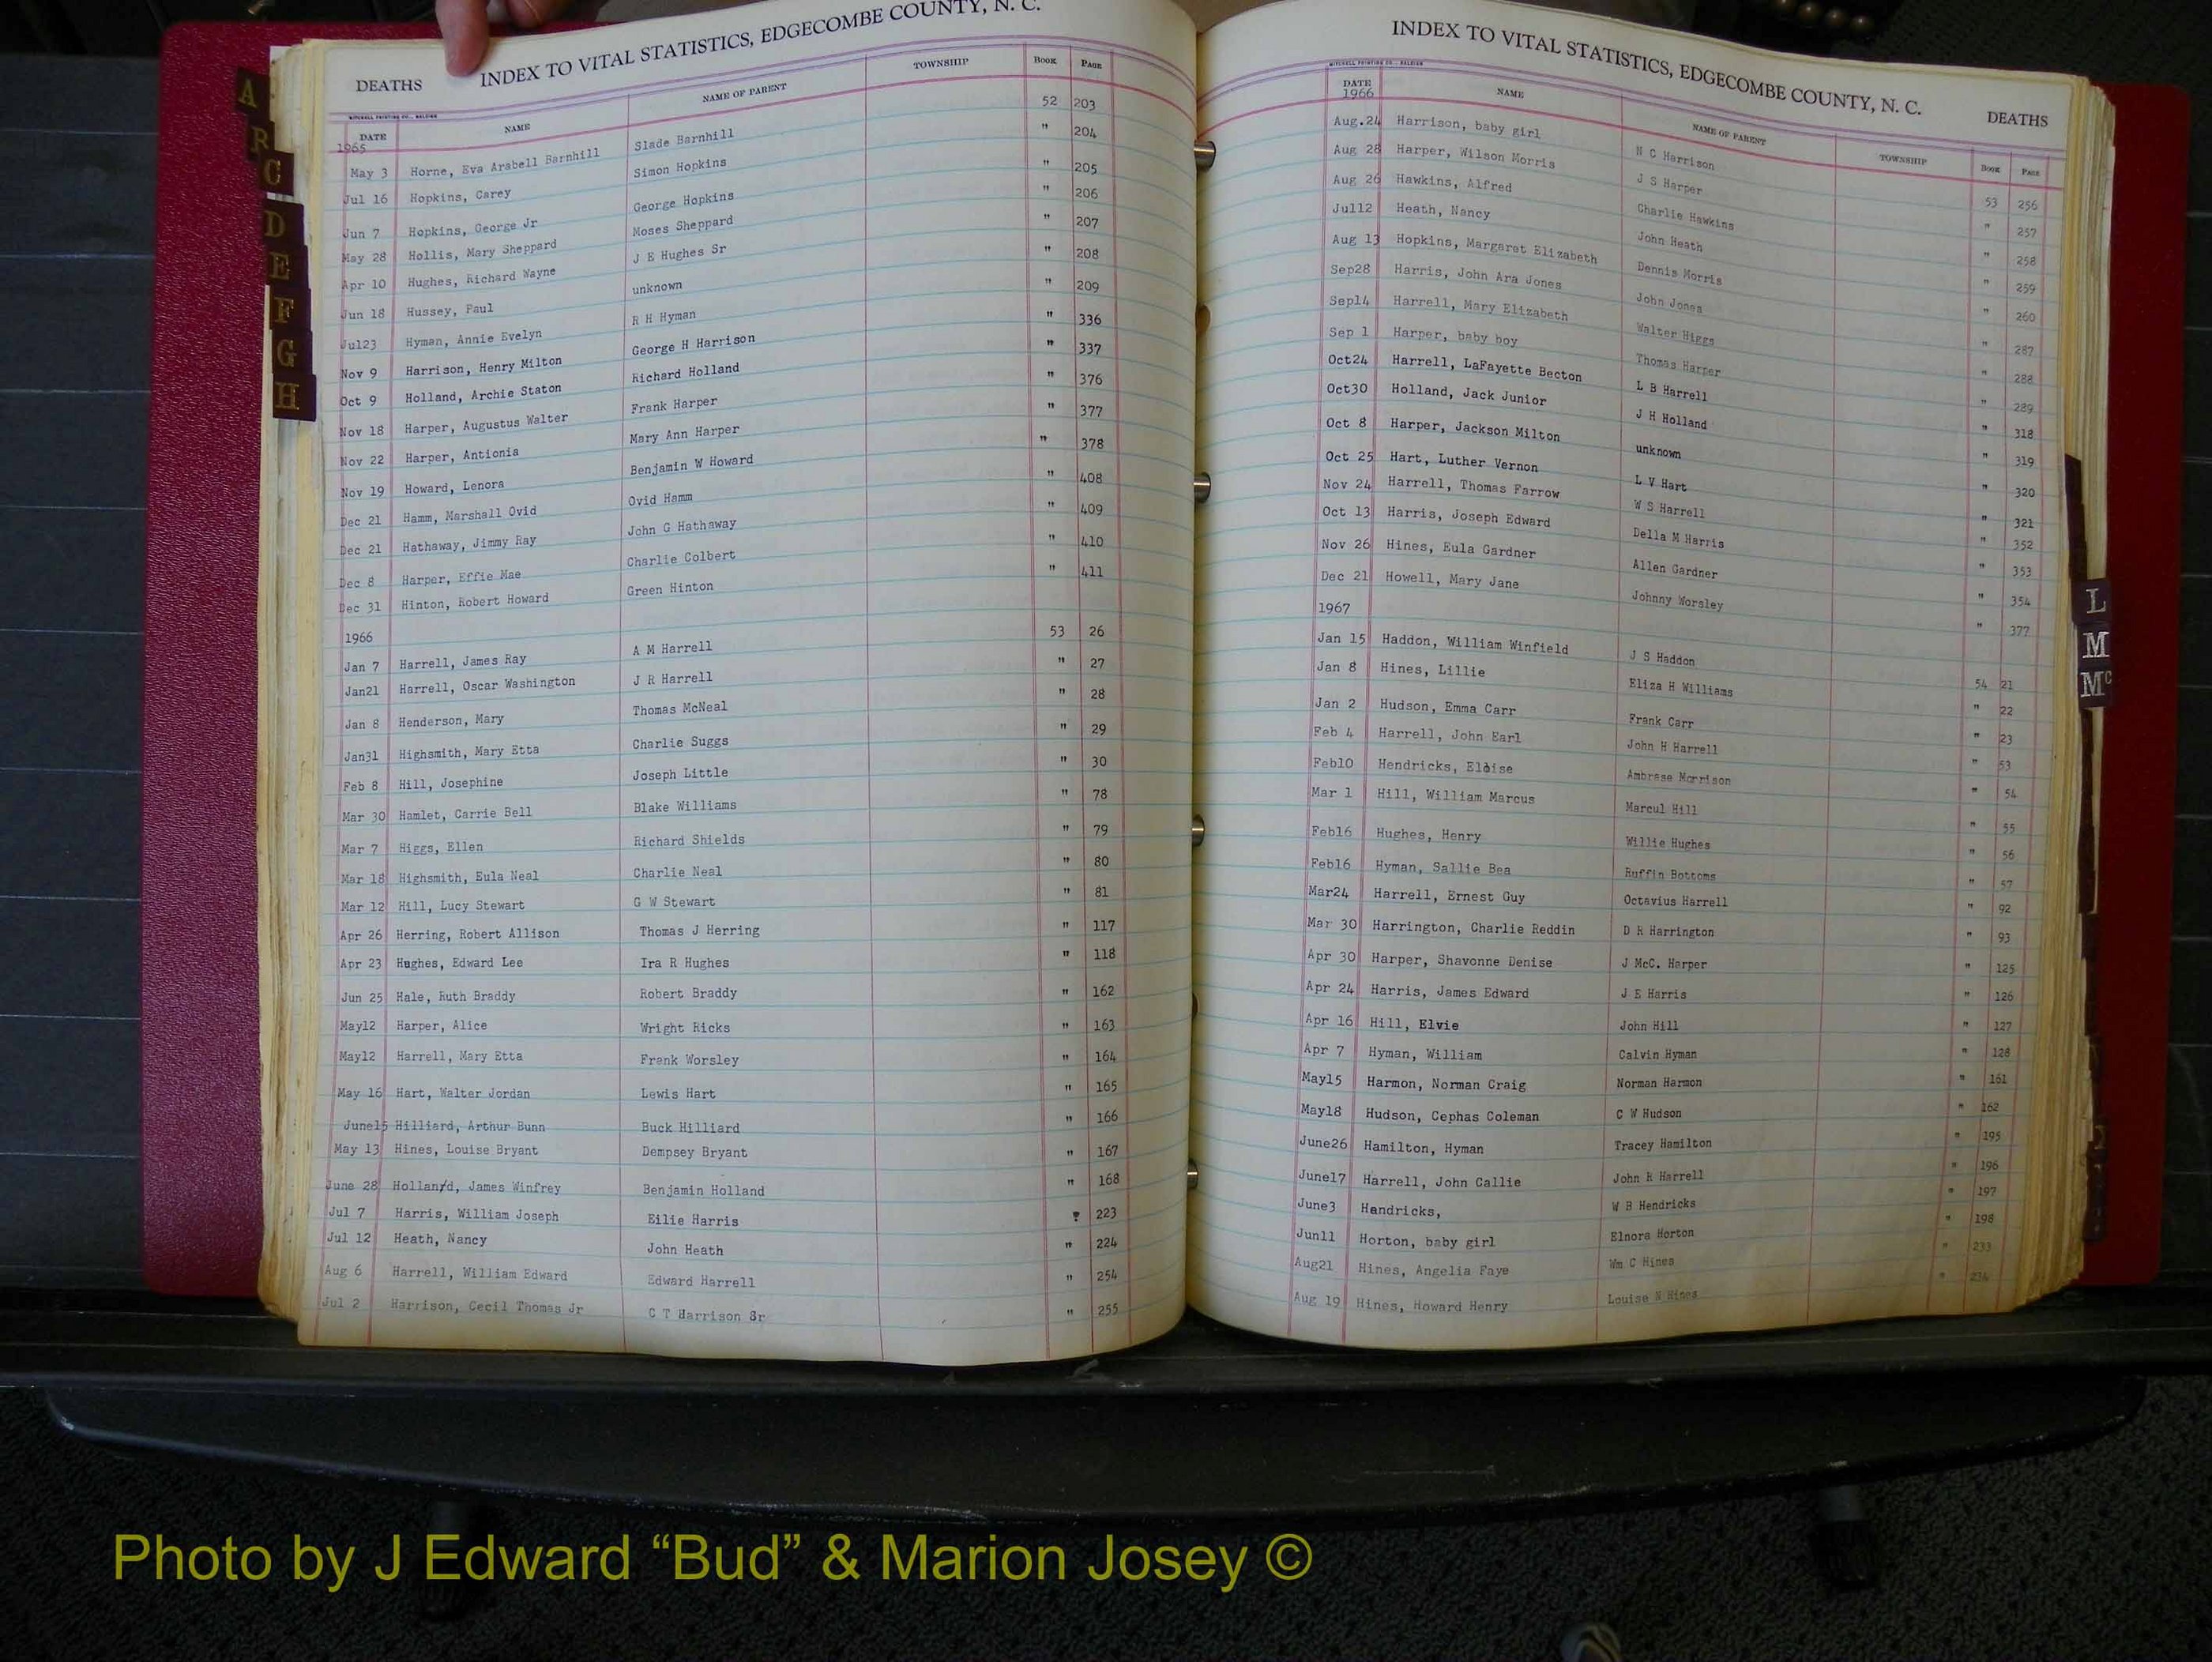 DEATHS INDEX TO VITAL STATISTICS, EDGECOMBE COUNTY, N. C.
MITCHELL PRINTING CO., RALEIGH
DATE NAME NAME OF PARENT TOWNSHIP BOOK PAGE
1965
May 3 Horne, Eva Arabell Barnhill Slade Barnhill 52 203
Jul 16 Hopkins, Carey Simon Hopkins " 204
Jun 7 Hopkins, George Jr George Hopkins " 205
May 28 Hollis, Mary Sheppard Moses Sheppard " 206
Apr 10 Hughes, Richard Wayne J E Hughes Sr " 207
Jun 18 Hussey, Paul unknown " 208
Jul23 Hyman, Annie Evelyn R H Hyman " 209
Nov 9 Harrison, Henry Milton George H Harrison " 336
Oct 9 Holland, Archie Staton Richard Holland " 337
Nov 18 Harper, Augustus Walter Frank Harper " 376
Nov 22 Harper, Antionia Mary Ann Harper " 377
Nov 19 Howard, Lenora Benjamin W Howard " 378
Dec 21 Hamm, Marshall Ovid Ovid Hamm " 408
Dec 21 Hathaway, Jimmy Ray John G Hathaway " 409
Dec 8 Harper, Effie Mae Charlie Colbert " 410
Dec 31 Hinton, Robert Howard Green Hinton " 411
1966
Jan 7 Harrell, James Ray A M Harrell 53 26
Jan21 Harrell, Oscar Washington J R Harrell " 27
Jan 8 Henderson, Mary Thomas McNeal " 28
Jan31 Highsmith, Mary Etta Charlie Suggs " 29
Feb 8 Hill, Josephine Joseph Little " 30
Mar 30 Hamlet, Carrie Bell Blake Williams " 78
Mar 7 Higgs, Ellen Richard Shields " 79
Mar 18 Highsmith, Eula Neal Charlie Neal " 80
Mar 12 Hill, Lucy Stewart G W Stewart " 81
Apr 26 Herring, Robert Allison Thomas J Herring " 117
Apr 23 Hughes, Edward Lee Ira R Hughes " 118
Jun 25 Hale, Ruth Braddy Robert Braddy " 162
May12 Harper, Alice Wright Ricks " 163
May12 Harrell, Mary Etta Frank Worsley " 164
May 16 Hart, Walter Jordan Lewis Hart " 165
June15 Hilliard, Arthur Bunn Buck Hilliard " 166
May 13 Hines, Louise Bryant Dempsey Bryant " 167
June 28 Hollan/d, James Winfrey Benjamin Holland " 168
Jul 7 Harris, William Joseph Eilie Harris " 223
Jul 12 Heath, Nancy John Heath " 224
Aug 6 Harrell, William Edward Edward Harrell " 254
Jul 2 Harrison, Cecil Thomas Jr C T Harrison Sr " 255
INDEX TO VITAL STATISTICS, EDGECOMBE COUNTY, N. C. DEATHS
MITCHELL PRINTING CO., RALEIGH
DATE NAME NAME OF PARENT TOWNSHIP BOOK PAGE
1966
Aug.24 Harrison, baby girl N C Harrison 53 256
Aug 28 Harper, Wilson Morris J S Harper " 257
Aug 26 Hawkins, Alfred Charlie Hawkins " 258
Jul12 Heath, Nancy John Heath " 259
Aug 13 Hopkins, Margaret Elizabeth Dennis Morris " 260
Sep28 Harris, John Ara Jones John Jones " 287
Sep14 Harrell, Mary Elizabeth Walter Higgs " 288
Sep 1 Harper, baby boy Thomas Harper " 289
Oct24 Harrell, LaFayette Becton L B Harrell " 318
Oct30 Holland, Jack Junior J H Holland " 319
Oct 8 Harper, Jackson Milton unknown " 320
Oct 25 Hart, Luther Vernon L V Hart " 321
Nov 24 Harrell, Thomas Farrow W S Harrell " 352
Oct 13 Harris, Joseph Edward Della M Harris " 353
Nov 26 Hines, Eula Gardner Allen Gardner " 354
Dec 21 Howell, Mary Jane Johnny Worsley " 377
1967
Jan 15 Haddon, William Winfield J S Haddon 54 21
Jan 8 Hines, Lillie Eliza H Williams " 22
Jan 2 Hudson, Emma Carr Frank Carr " 23
Feb 4 Harrell, John Earl John H Harrell " 53
Feb10 Hendricks, Eloise Ambrose Morrison " 54
Mar 1 Hill, William Marcus Marcul Hill " 55
Feb16 Hughes, Henry Willie Hughes " 56
Feb16 Hyman, Sallie Bea Ruffin Bottoms " 57
Mar24 Harrell, Ernest Guy Octavius Harrell " 92
Mar 30 Harrington, Charlie Reddin D R Harrington " 93
Apr 30 Harper, Shavonne Denise J McC. Harper " 125
Apr 24 Harris, James Edward J E Harris " 126
Apr 16 Hill, Elvie John Hill " 127
Apr 7 Hyman, William Calvin Hyman " 128
May15 Harmon, Norman Craig Norman Harmon " 161
May18 Hudson, Cephas Coleman C W Hudson " 162
June26 Hamilton, Hyman Tracey Hamilton " 195
June17 Harrell, John Callie John R Harrell " 196
June3 Hendricks, W B Hendricks " 197
Jun11 Horton, baby girl Elnora Horton " 198
Aug21 Hines, Angelia Faye Wm C Hines " 233
Aug 19 Hines, Howard Henry Louise N Hines " 234
A
B
C
D
E
F
G
H
L
M
Mc
Photo by J Edward “Bud” & Marion Josey ©